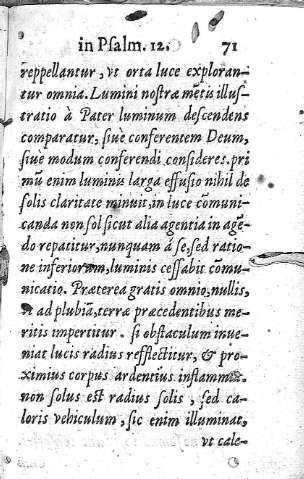 in Psalm. 12. 71
reppellantur, vt orta luce exploran-
tur omnia. Lumini nostræ mẽtis illus-
tratio à Pater luminum descendens
comparatur, siuè conferentem Deum,
siuè modum conferendi consideres. pri
mũ enim luminis larga effusio nihil de
solis claritate minuit, in luce cõmuni-
canda non sol sicut alia agentia in agẽ-
do repatitur, nunquam à se, sed ratio-
ne inferiorum, luminis cessabit cõmu-
nicatio. Præterea gratis omnio, nullis,
ad plubiã, terræ præcedentibus me-
ritis impertitur. si obstaculum inue-
niat lucis radius refflectitur, & pro-
ximius corpus ardentius inflammat.
non solus est radius solis, sed ca-
loris vehiculum, sic enim illuminat,
vt cale-